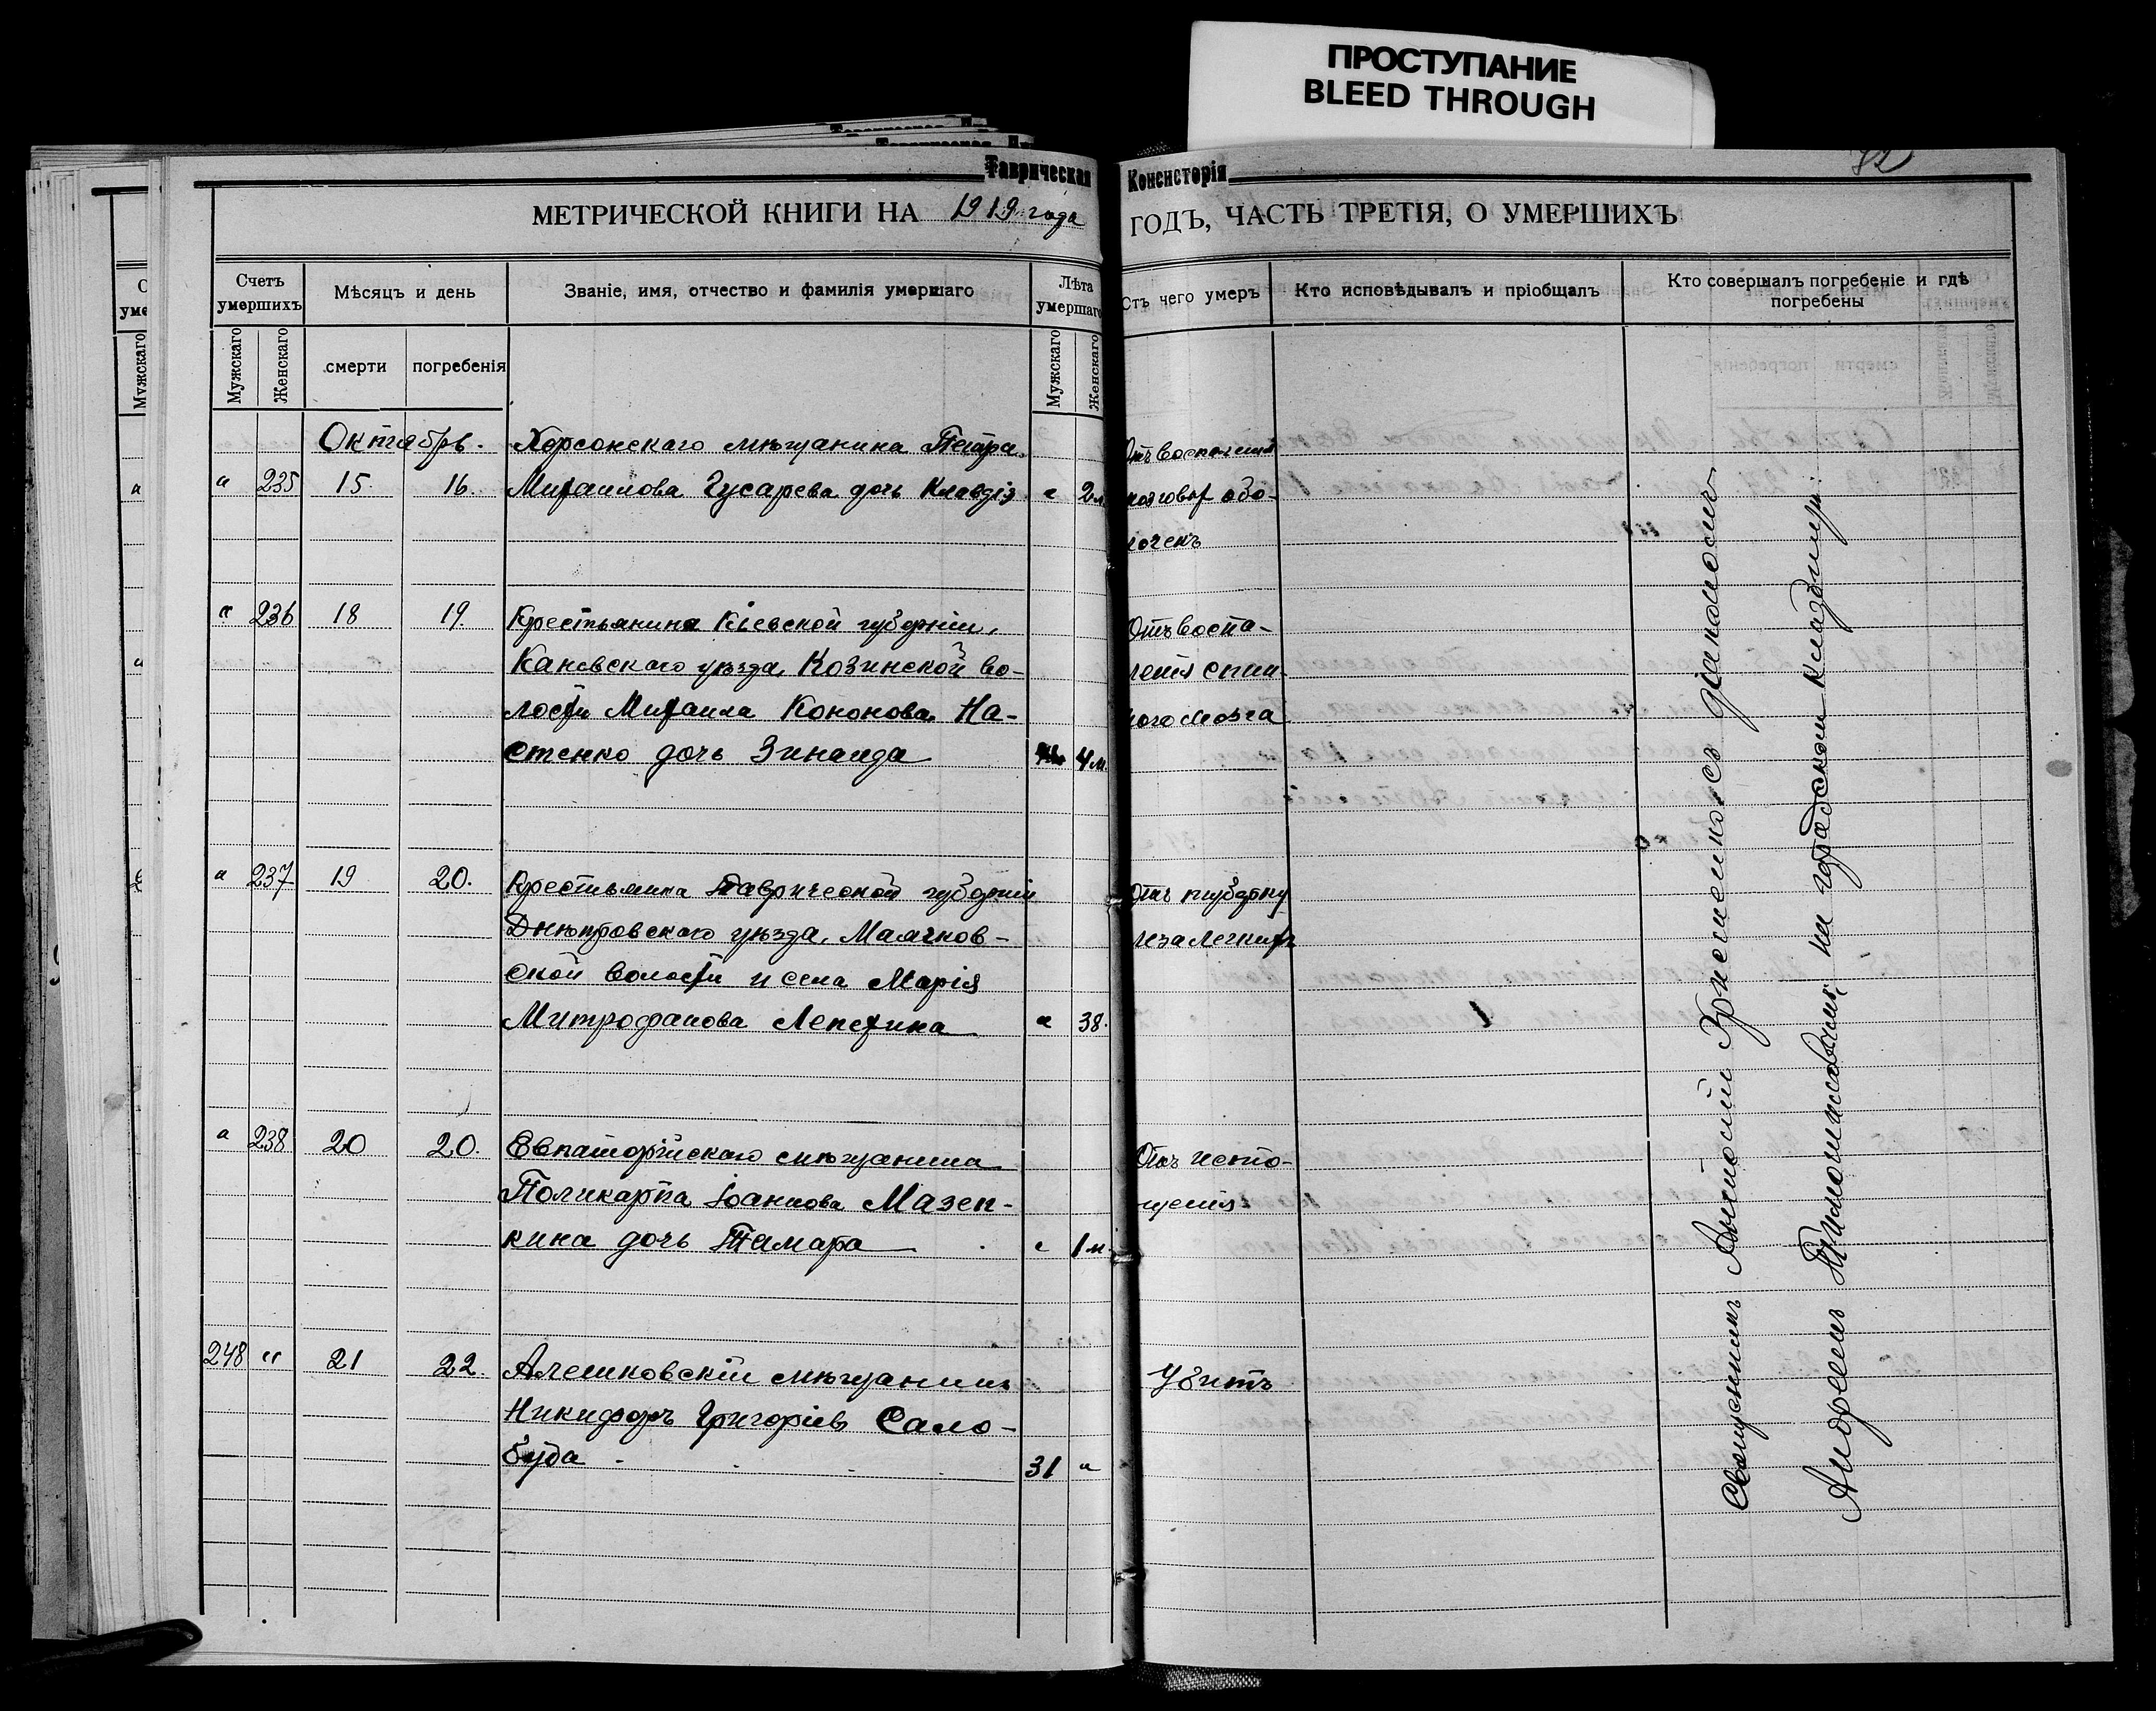 ПРОСТУПАНИЕ
BLEED THROUGH
Таврическая Консисторія
МЕТРИЧЕСКОЙ КНИГИ НА 1919 года ГОДЪ, ЧАСТЬ ТРЕТІЯ, О УМЕРШИХЪ
Счетъ умершихъ
Мѣсяцъ и день
Званіе, имя, отчество и фамилія умершаго
Лѣта умершаго
Отъ чего умеръ
Кто исповѣдывалъ и пріобщалъ
Кто совершалъ погребеніе и гдѣ погребены
Мужскаго
Женскаго
смерти
погребенія
Мужскаго
Женскаго
Октябрь. Херсонскаго мѣщанина Петра Отъ воспаленія
" 235 15. 16. Михаилова Гусарева дочь Клавдія " 2 л. мозговых обо-
лочекъ
" 236 18 19. Крестьянина Кіевской губерніи, Отъ воспа-
Каневскаго уѣзда, Козинской во- ленія спин-
лости Михаила Кононова На- ного мозга
стенко дочь Зинаида 4 м.
" 237 19 20. Крестьянка Таврической губерніи Отъ туберку
Днѣпровскаго уѣзда, Маячков- леза легкихъ
ской волости и села Марія
Митрофанова Лепехина " 38.
" 238 20 20. Евпаторійскаго мѣщанина Отъ исто-
Поликарпа Іоаннова Мазен- щенія
кина дочь Тамара " 1 м.
248 " 21 22. Алешковскій мѣщанинъ Убитъ
Никифоръ Григоріевъ Сало-
буда 31 "
Священникъ Антоній съ діакономъ
Андреемъ на городскомъ кладбищѣ.